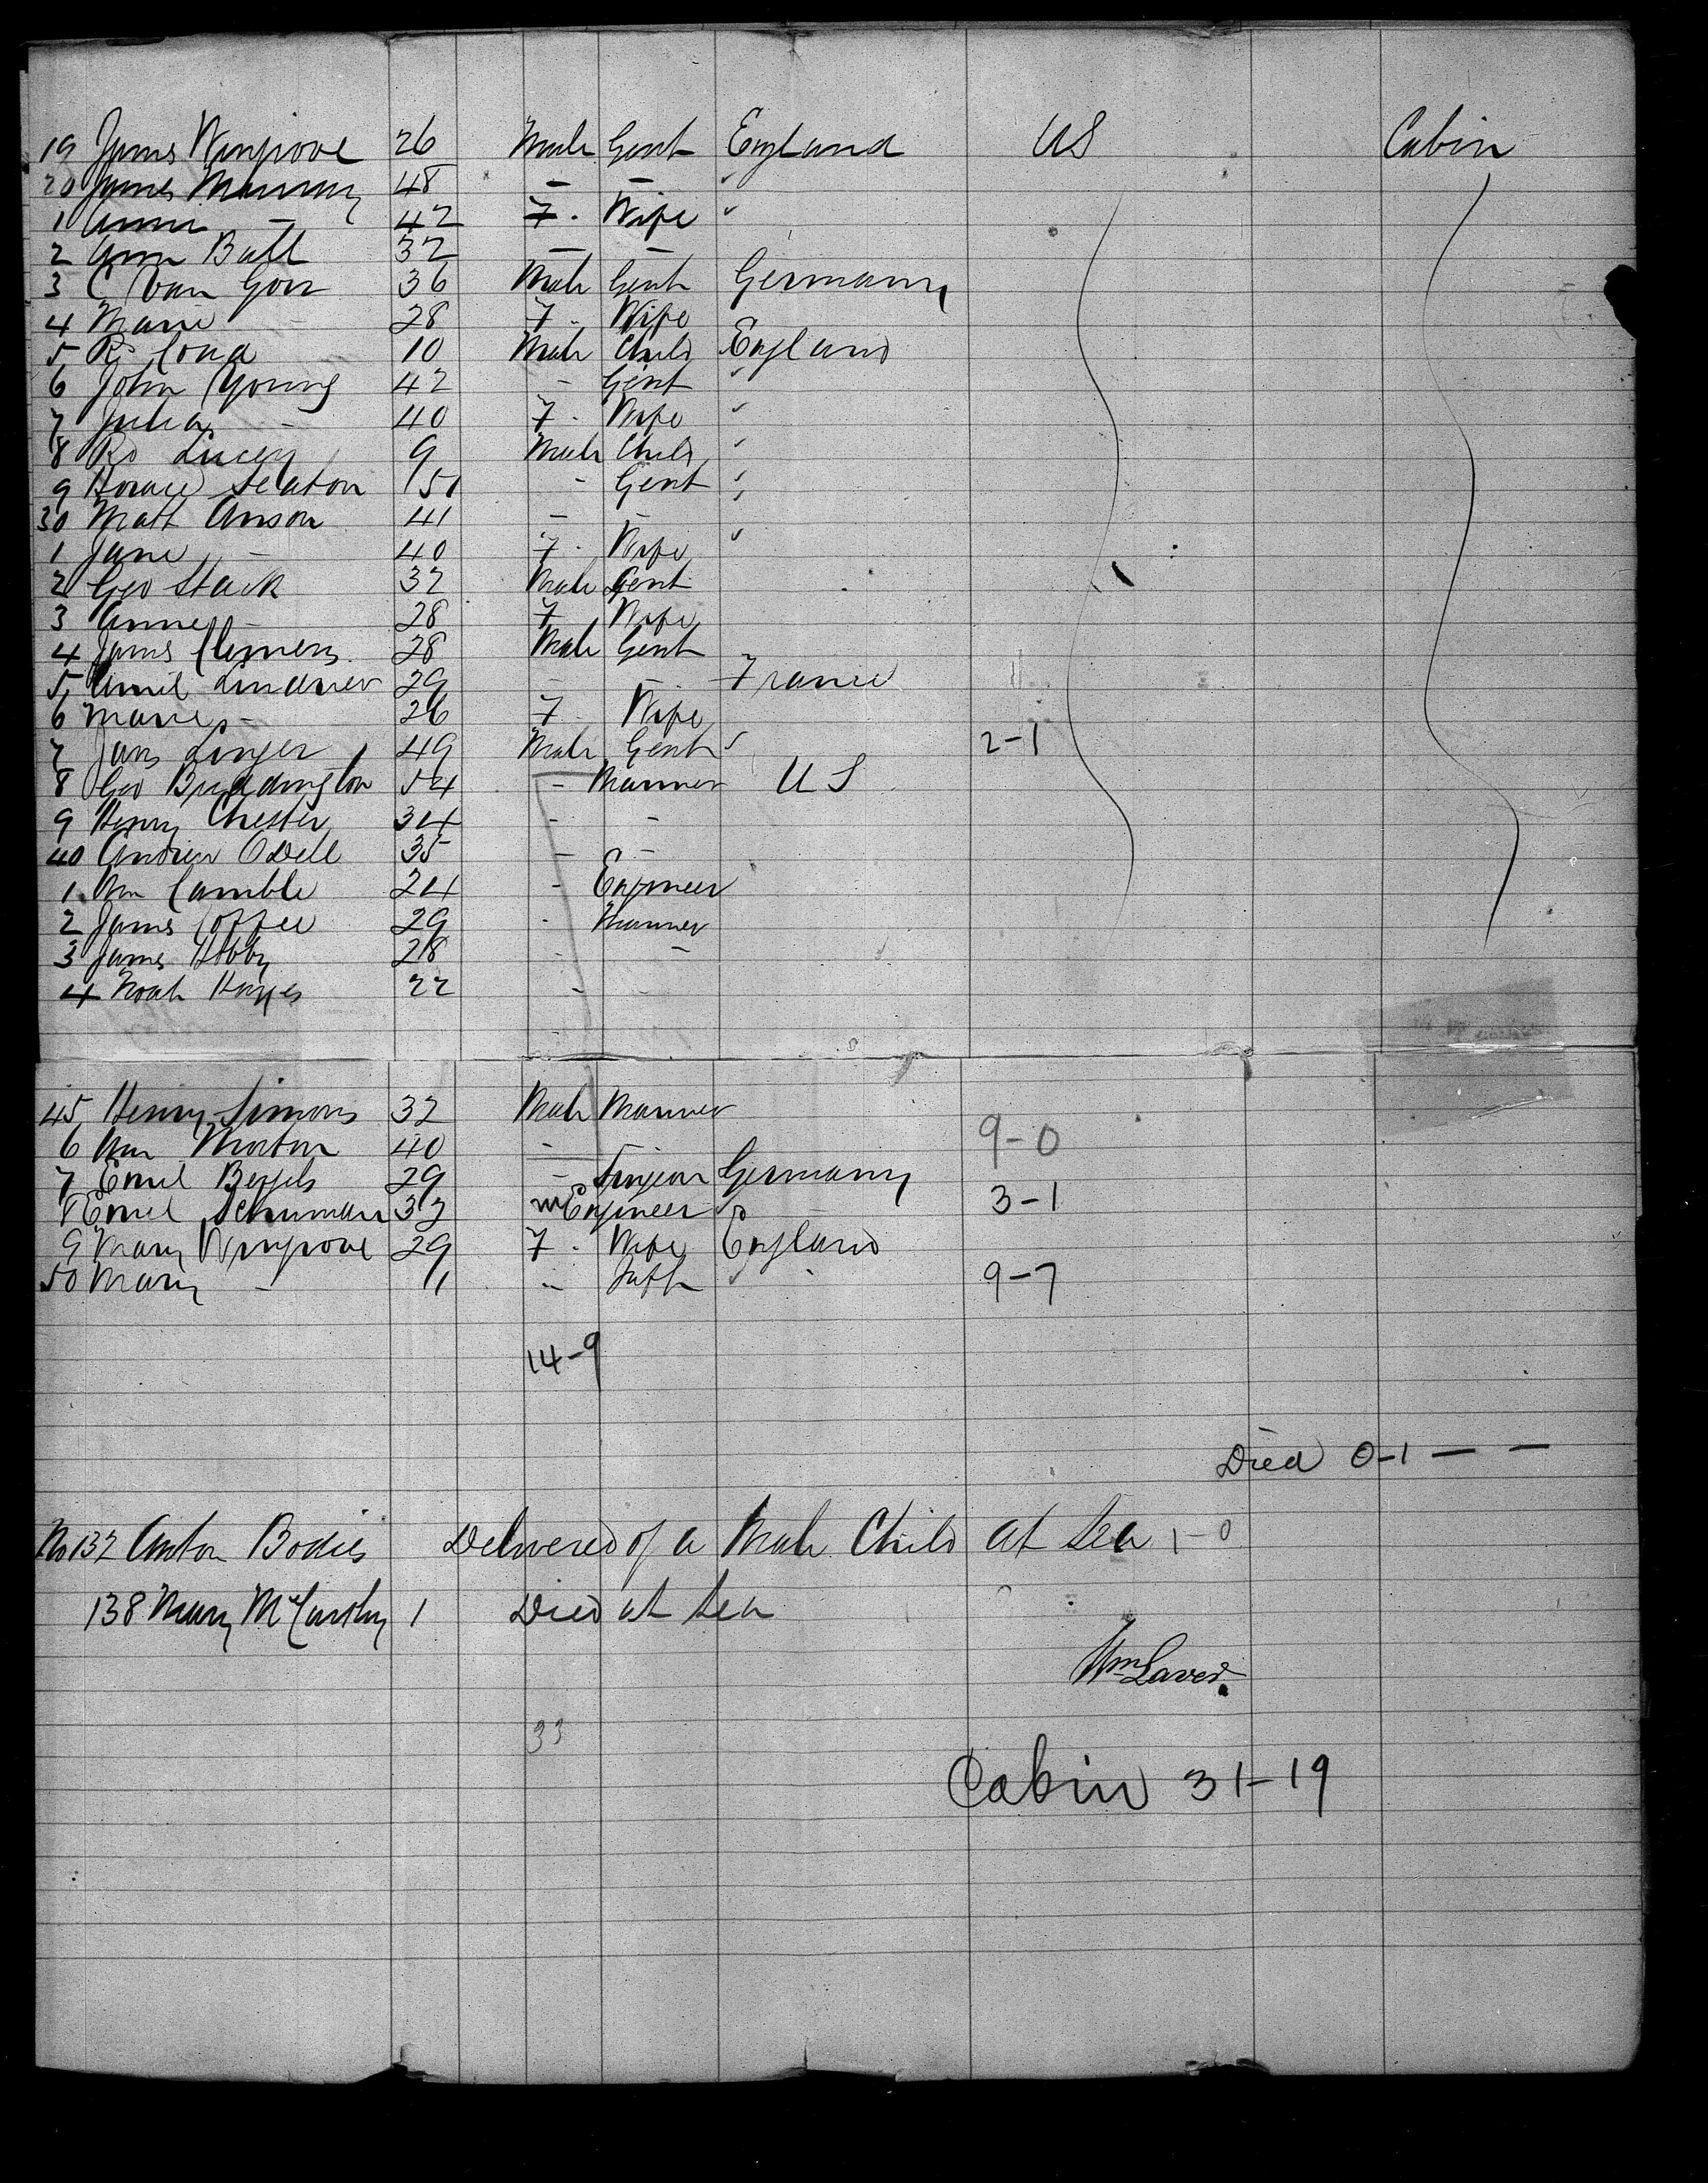 19 James Wingrove 26 Male Gent England US Cabin
20 James Murray 48 - - "
1 Anna - 42 F. Wife "
2 Ann Butt 32 - -
3 C Van Gorr 36 Male Gent Germany
4 Marie - 28 F. Wife
5 R. Coad 10 Male Child England
6 John Young 42 - Gent "
7 Julia - 40 F. Wife "
8 Ro Lucey 9 Male Child "
9 Horace Seaton 51 - Gent "
30 Matt Anson 41 - - "
1 Jane - 40 F. Wife "
2 Geo Stack 32 Male Gent
3 Anne - 28 F Wife
4 James Clemens 28 Male Gent
5 Lindner 29 - - France
6 Marie - 26 F. Wife
7 Jas Singer 49 Male Gent " 2-1
8 Geo Buddington 54 - Mariner US
9 Henry Chester 34 - -
40 Andrew Odell 35 - -
1 Wm Camble 24 - Engineer
2 James Coffee 29 - Mariner
3 James Hobby 28 - -
4 Noah Hayes 22 -
45 Henry Simons 32 Male Mariner
6 Wm Morton 40 - 9-0
7 Emil Bessels 29 - Surgeon Germany
8 Emil Schuman 32 m Engineer Do 3-1
9 Mary Wingrove 29 F. Wife England
50 Mary - 11 " " 9-7
14-9
Died 0-1 - -
No 132 Anton Bodies Delivered of a Male Child at Sea 1-0
138 Mary McCarthy 1 Died at Sea
Wm Laver.
33
Cabin 31-19